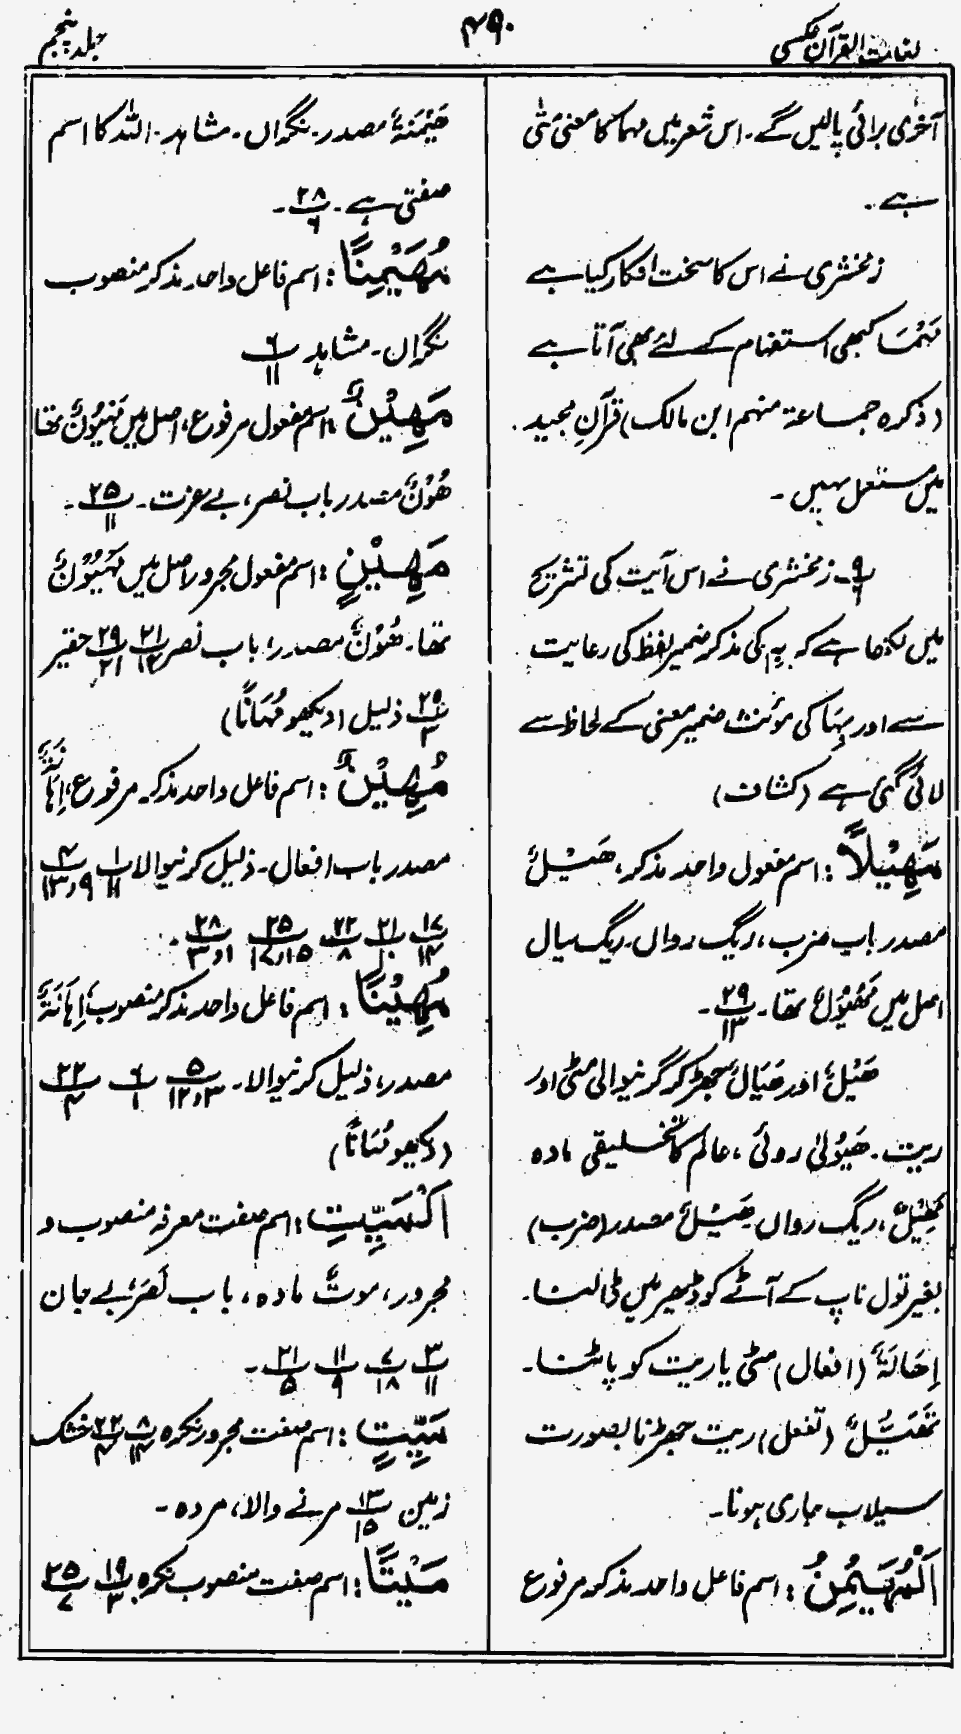 لغات القرآن عکسی
۴۹۰
جلد پنجم
آخری برائی پالیں گے۔ اس شعر میں مہما کا معنیٰ متٰی
ہے۔
زمخشری نے اس کا سخت انکار کیا ہے
مَہْمَا کبھی استفہام کے لئے بھی آتا ہے
(ذکرہ جماعۃ منہم ابن مالک) قرآنِ مجید
میں مستعمل نہیں۔
۹/۶۔ زمخشری نے اس آیت کی تشریح
میں لکھا ہے کہ بِہٖ کی مذکر ضمیر لفظ کی رعایت
سے اور بِہَا کی مؤنث ضمیر معنی کے لحاظ سے
لائی گئی ہے (کشاف)
مَهِيْلًا: اسم مفعول واحد مذکر، هَيْلٌ
مصدر باب ضرب، ریگ رواں۔ ریگ سیال
اصل میں مَهْيُوْلٌ تھا۔ ۲۹/۱۳۔
هَيْلٌ اور هَيَالٌ جھڑ کر گرنیوالی مٹی اور
ریت۔ هَيُوْلٰی روئی، عالم کا تخلیقی مادہ
مَهِيْلٌ، ریگ رواں هَيْلٌ مصدر (ضرب)
بغیر تول ناپ کے آٹے کو ڈھیر میں ڈالنا۔
اِهَالَةٌ (افعال) مٹی یا ریت کو پاٹنا۔
تَهَيُّلٌ (تفعل) ریت جھڑنا بصورت
سیلاب جاری ہونا۔
اَلْمُهَيْمِنُ: اسم فاعل واحد مذکر مرفوع
هَيْمَنَةٌ مصدر۔ نگراں۔ مشاہد۔ اللہ کا اسم
صفتی ہے۔ ۲۸/۶۔
مُهَيْمِنًا: اسم فاعل واحد مذکر منصوب
نگراں۔ مشاہد ۶/۱۱
مَهِيْنٌ: اسم مفعول مرفوع، اصل میں مَهْيُوْنٌ تھا
هُوْنٌ مصدر باب نصر، بے عزت۔ ۲۵/۱۱۔
مَهِيْنٍ: اسم مفعول مجرور اصل میں مَهْيُوْنٌ
تھا۔ هُوْنٌ مصدر، باب نصر ۲۱/۱۴ ۲۹/۲۱ حقیر
۲۵/۳ ذلیل (دیکھو مُهَانًا)
مُهِيْنٌ: اسم فاعل واحد مذکر مرفوع، اِهَانَةٌ
مصدر باب افعال۔ ذلیل کرنیوالا ۱/۱۱ ۴/۹،۱۳
۱۷/۱۴ ۲۱/۱۰ ۲۲/۸ ۲۵/۱۵،۱۷ ۲۸/۱،۳۔
مُهِيْنًا: اسم فاعل واحد مذکر منصوب، اِهَانَةٌ
مصدر، ذلیل کرنیوالا۔ ۵/۳،۱۲ ۶/۱ ۲۲/۴
(دیکھو مُهَانًا)
اَلْمَيِّتِ: اسم صفت معرفہ منصوب و
مجرور، موتٌ مادہ، باب نَصَرَ، بے جان
۳/۱۱ ۷/۱۸ ۱۱/۹ ۲۱/۵۔
مَيِّتٍ: اسم صفت مجرور نکرہ ۸/۱۴ ۲۲/۱۴ خشک
زمین ۱۳/۱۵ مرنے والا، مردہ۔
مَيْتًا: اسم صفت منصوب نکرہ، ۱۹/۳ ۲۵/۷